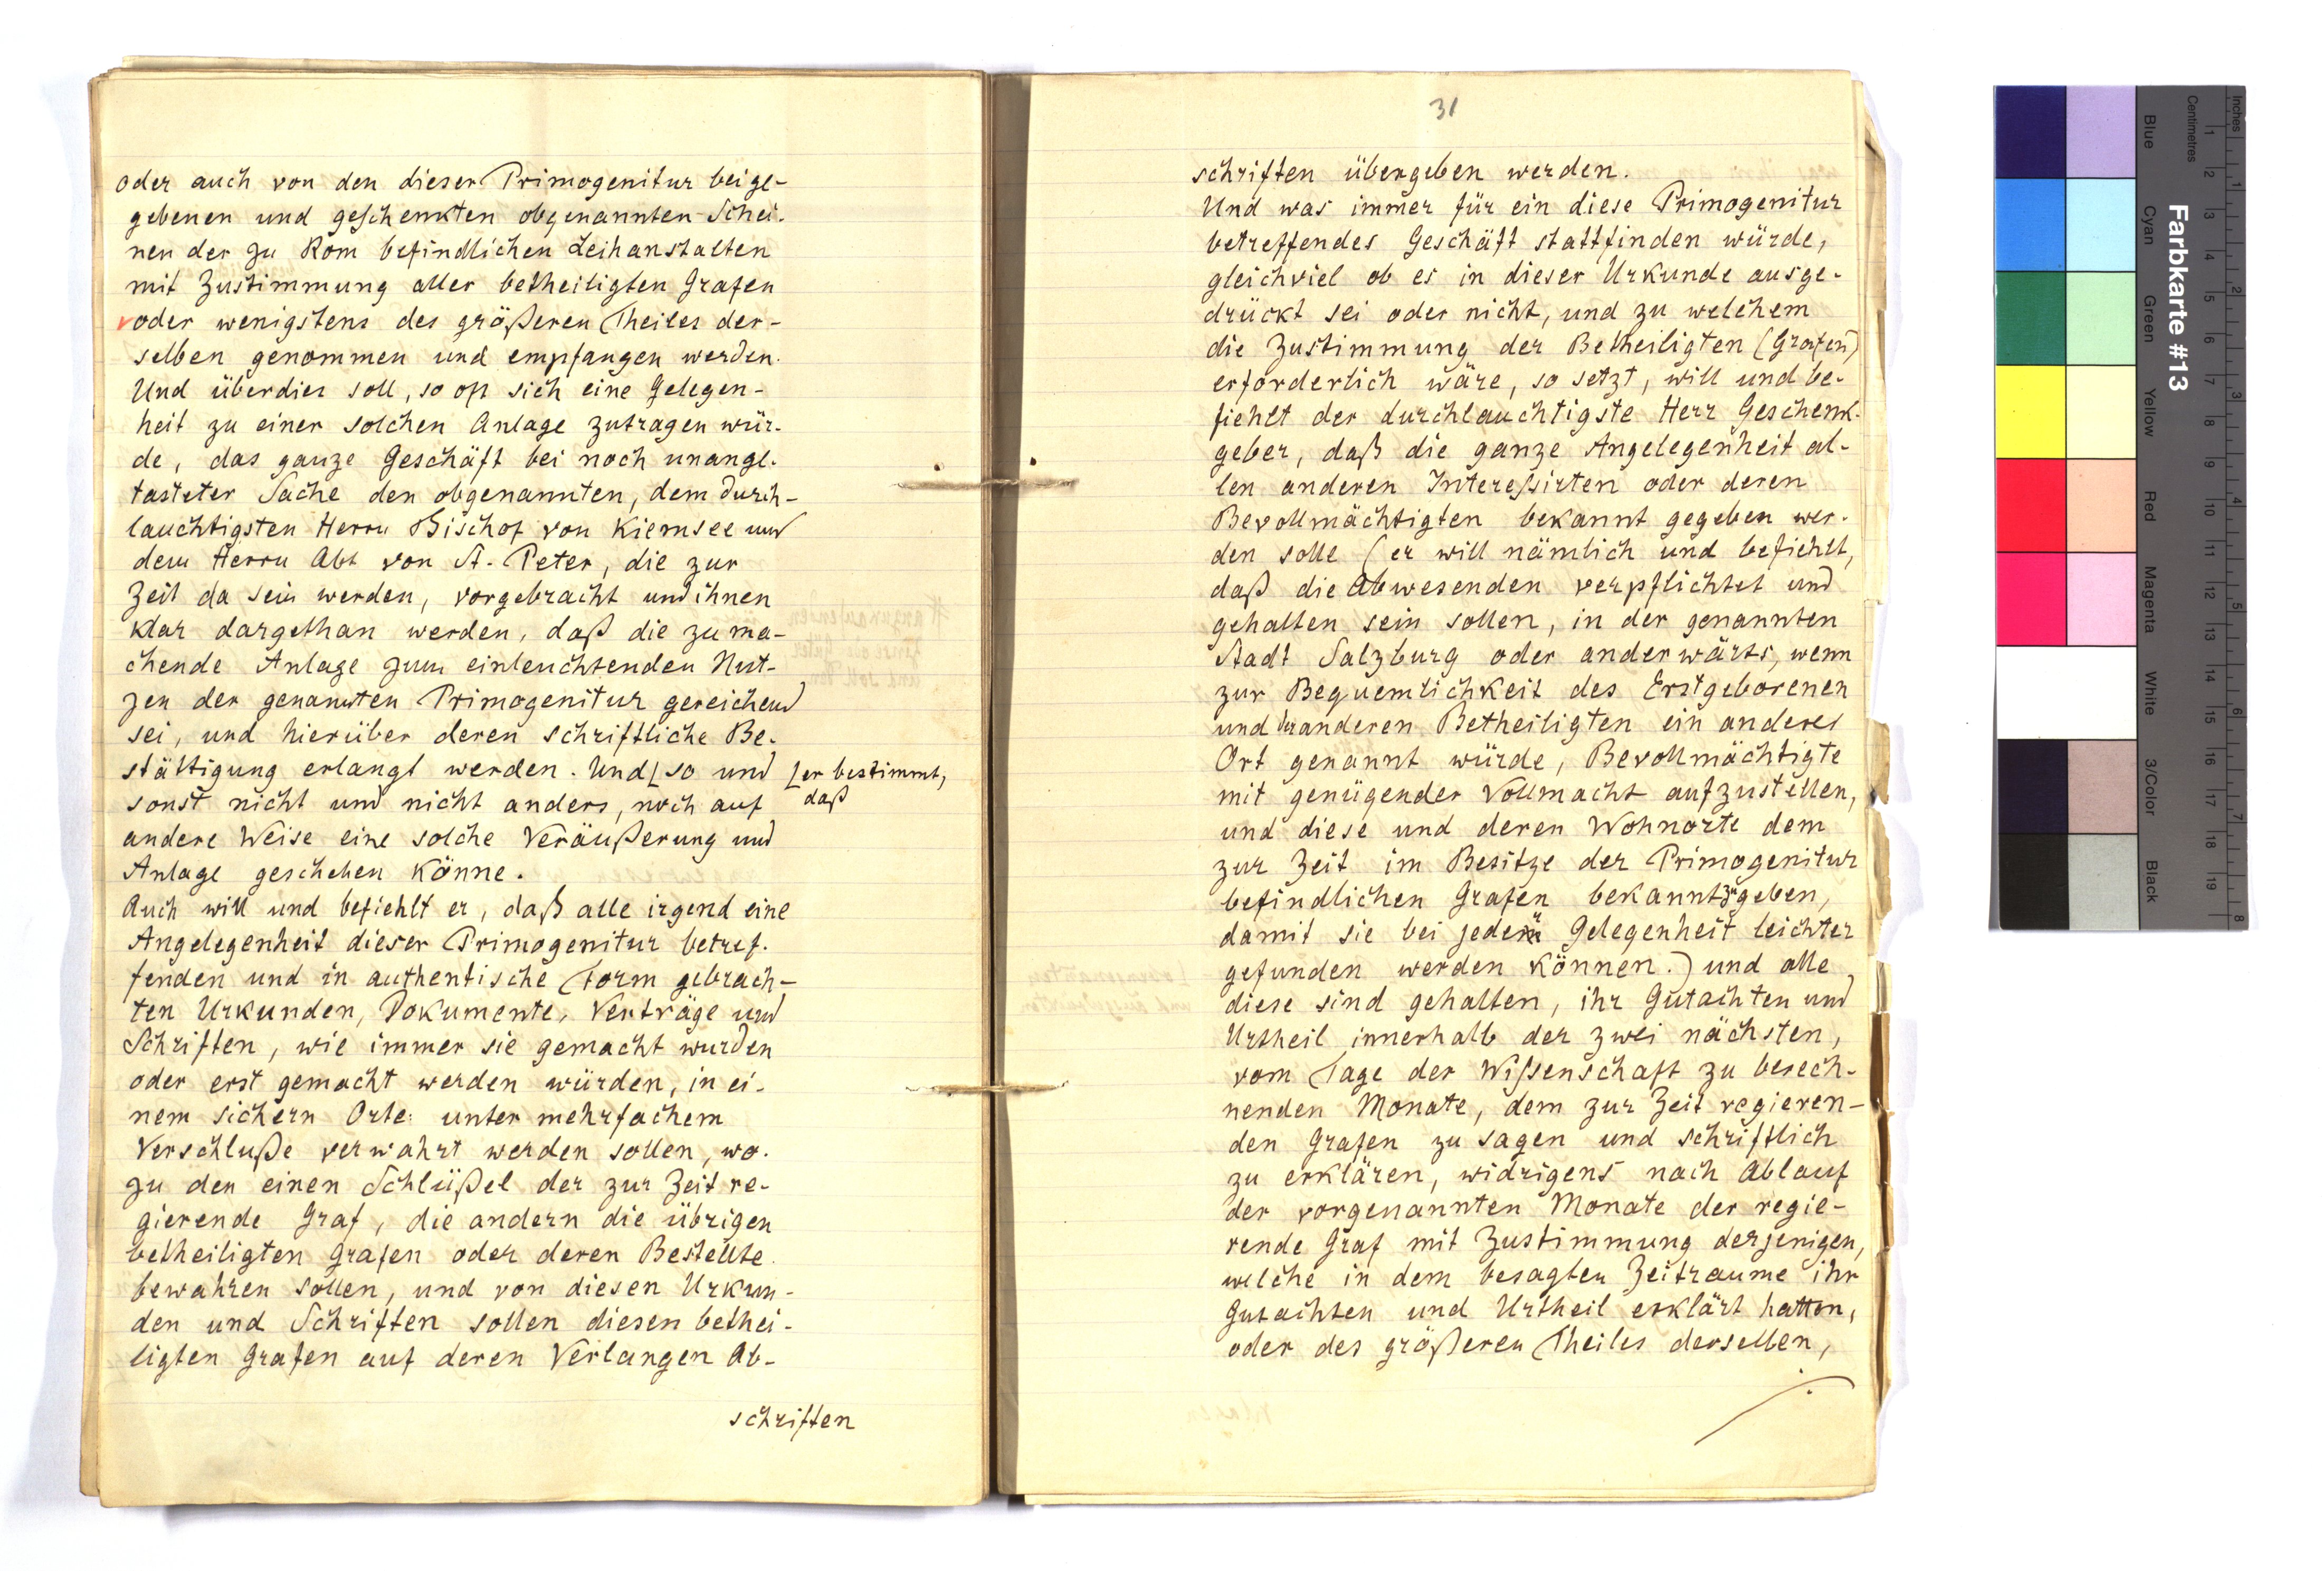 oder auch von den dieser Primogenitur beige-
gebenen und geschenkten obgenannten Schei-
nen der zu Rom befindlichen Leihanstalten
mit Zustimmung aller betheiligten Grafen
oder wenigstens des größeren Theiles der-
selben genommen und empfangen werden.
Und überdies soll, so oft sich eine Gelegen-
heit zu einer solchen Anlage zutragen wür-
de, das ganze Geschäft bei noch unange-
tasteter Sache den obgenannten, dem durch-
lauchtigsten Herrn Bischof von Kiemsee und
dem Herrn Abt von St. Peter, die zur
Zeit da sein werden, vorgebracht und ihnen
klar dargethan werden, daß die zu ma-
chende Anlage zum einleuchtenden Nut-
zen der genannten Primogenitur gereichend
sei, und hierüber deren schriftliche Be-
stättigung erlangt werden. Und ⌊ so und
⌊ er bestimmt,
daß
sonst nicht und nicht anders, noch auf
andere Weise eine solche Veräußerung und
Anlage geschehen könne.
Auch will und befiehlt er, daß alle irgend eine
Angelegenheit dieser Primogenitur betref-
fenden und in authentische Form gebrach-
ten Urkunden, Dokumente, Verträge und
Schriften, wie immer sie gemacht wurden
oder erst gemacht werden würden, in ei-
nem sichern Orte unter mehrfachem
Verschluße verwahrt werden sollen, wo-
zu den einen Schlüßel der zur Zeit re-
gierende Graf, die andern die übrigen
betheiligten Grafen oder deren Bestellte
bewahren sollen, und von diesen Urkun-
den und Schriften sollen diesen bethei-
ligten Grafen auf deren Verlangen Ab-
schriften
31
schriften übergeben werden.
Und was immer für ein diese Primogenitur
betreffendes Geschäft stattfinden würde,
gleichviel ob es in dieser Urkunde ausge-
drückt sei oder nicht, und zu welchem
die Zustimmung der Betheiligten (Grafen)
erforderlich wäre, so setzt, will und be-
fiehlt der durchlauchtigste Herr Geschenk-
geber, daß die ganze Angelegenheit al-
len anderen Intereßirten oder deren
Bevollmächtigten bekannt gegeben wer-
den solle (er will nämlich und befiehlt,
daß die Abwesenden verpflichtet und
gehalten sein sollen, in der genannten
Stadt Salzburg oder anderwärts, wenn
zur Bequemlichkeit des Erstgeborenen
und der anderen Betheiligten ein anderer
Ort genannt würde, Bevollmächtigte
mit genügender Vollmacht aufzustellen,
und diese und deren Wohnorte dem
zur Zeit im Besitze der Primogenitur
befindlichen Grafen bekanntzugeben,
damit sie bei jeder Gelegenheit leichter
gefunden werden können.) und alle
diese sind gehalten, ihr Gutachten und
Urtheil innerhalb der zwei nächsten,
vom Tage der Wißenschaft zu berech-
nenden Monate, dem zur Zeit regieren-
den Grafen zu sagen und schriftlich
zu erklären, widrigens nach Ablauf
der vorgenannten Monate der regie-
rende Graf mit Zustimmung derjenigen,
welche in dem besagten Zeitraume ihr
Gutachten und Urtheil erklärt hatten,
oder des größeren Theiles derselben,
Farbkarte #13
Blue
Cyan
Green
Yellow
Red
Magenta
White
3/Color
Black
Centimetres
1 2 3 4 5 6 7 8 9 10 11 12 13 14 15 16 17 18 19
Inches
1 2 3 4 5 6 7 8